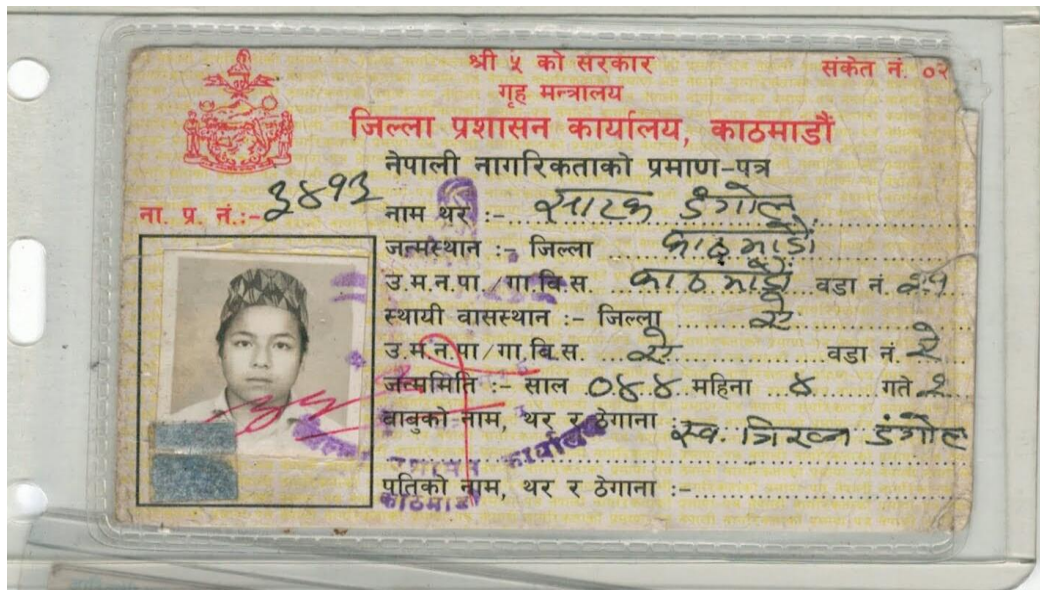 श्री ५ को सरकार
संकेत नं. ०२
गृह मन्त्रालय
जिल्ला प्रशासन कार्यालय, काठमाडौं
नेपाली नागरिकताको प्रमाण-पत्र
ना. प्र. नं.:- ३४१२
नाम थर :- सारक डंगोल
जन्मस्थान :- जिल्ला काठमाडौं
उ.म.न.पा./गा.वि.स. काठमाडौं वडा नं. २१
स्थायी वासस्थान :- जिल्ला ऐ
उ.म.न.पा/गा.वि.स. ऐ वडा नं. ऐ
जन्ममिति :- साल ०४४ महिना ४ गते २
बाबुको नाम, थर र ठेगाना स्व. त्रिरत्न डंगोल
पतिको नाम, थर र ठेगाना :-
प्रशासन कार्यालय
काठमाडौं